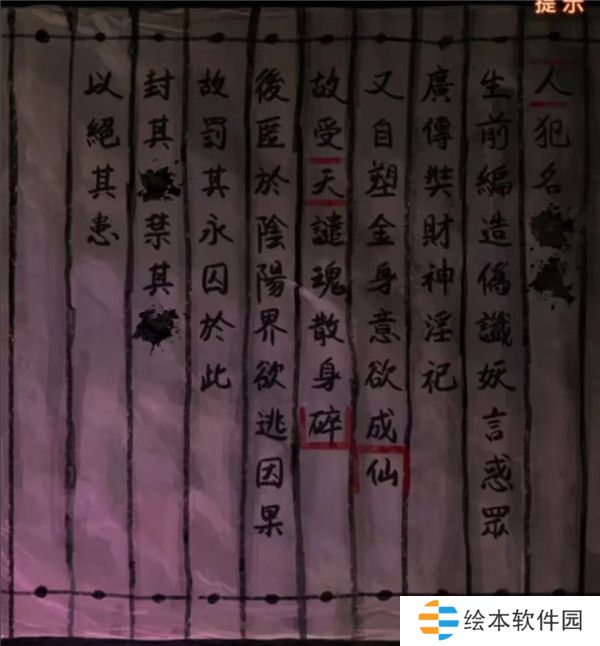 提示
人犯名
生前編造偽讖妖言惑眾
廣傳奘財神淫祀
又自塑金身意欲成仙
故受天譴魂散身碎
後匿於陰陽界欲逃因果
故罰其永囚於此
封其禁其
以絕其患
绘本软件园